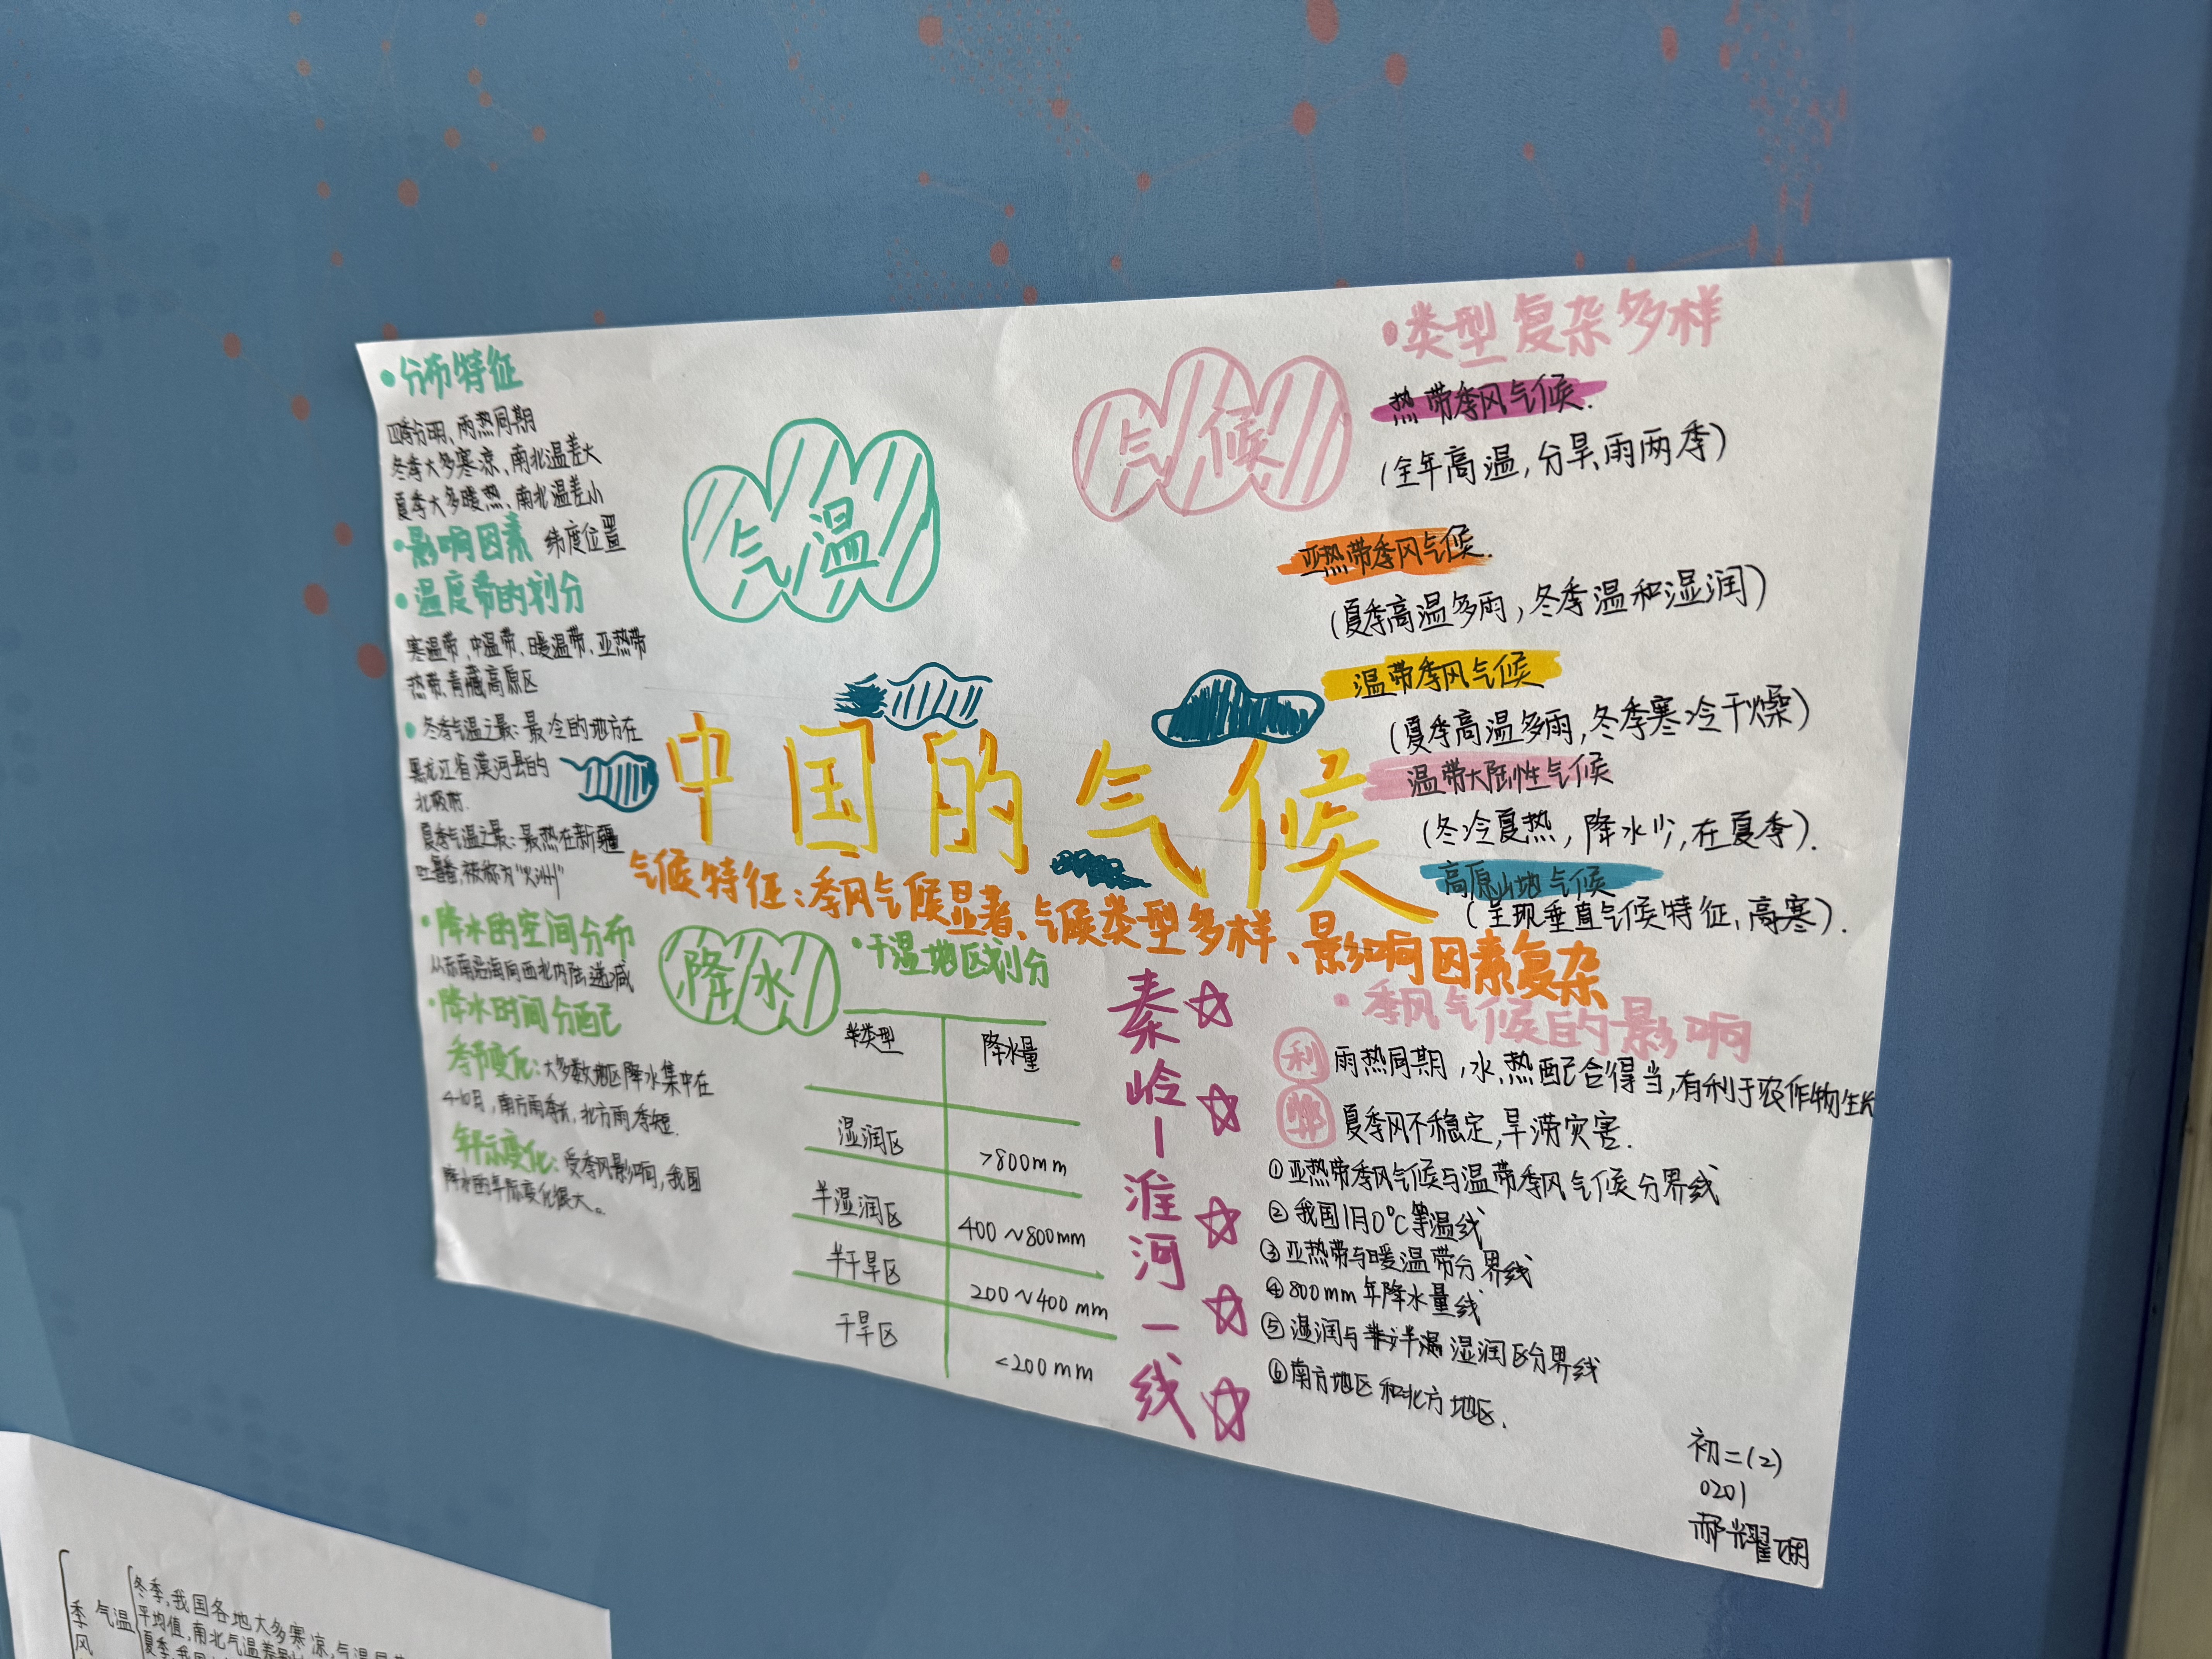 ·分布特征
四季分明、雨热同期
冬季大多寒凉、南北温差大
夏季大多暖热、南北温差小
·影响因素 纬度位置
·温度带的划分
寒温带、中温带、暖温带、亚热带
热带、青藏高原区
·冬季气温之最：最冷的地方在
黑龙江省漠河县的
北极村.
夏季气温之最：最热在新疆
吐鲁番，被称为"火洲"
气温
气候
·类型复杂多样
热带季风气候.
(全年高温，分旱、雨两季)
亚热带季风气候.
(夏季高温多雨，冬季温和湿润)
温带季风气候
(夏季高温多雨，冬季寒冷干燥)
温带大陆性气候
(冬冷夏热，降水少，在夏季).
高原山地气候
(呈现垂直气候特征，高寒).
中国的气候
气候特征：季风气候显著、气候类型多样、影响因素复杂
·降水的空间分布
从东南沿海向西北内陆递减
·降水时间分配
季节变化：大多数地区降水集中在
4-10月，南方雨季长，北方雨季短.
年际变化：受季风影响，我国
降水的年际变化很大。
降水
·干湿地区划分
类型 降水量
湿润区 >800mm
半湿润区 400～800mm
半干旱区 200～400mm
干旱区 <200mm
秦岭—淮河一线
·季风气候的影响
利 雨热同期，水、热配合得当，有利于农作物生长
弊 夏季风不稳定，旱涝灾害.
①亚热带季风气候与温带季风气候分界线
②我国1月0℃等温线
③亚热带与暖温带分界线
④800mm年降水量线
⑤湿润与半湿润区分界线
⑥南方地区和北方地区.
初二(2)
0201
郝耀
季风
气温
冬季，我国各地大多寒凉，气温
平均值，南北气温差
夏季，我国